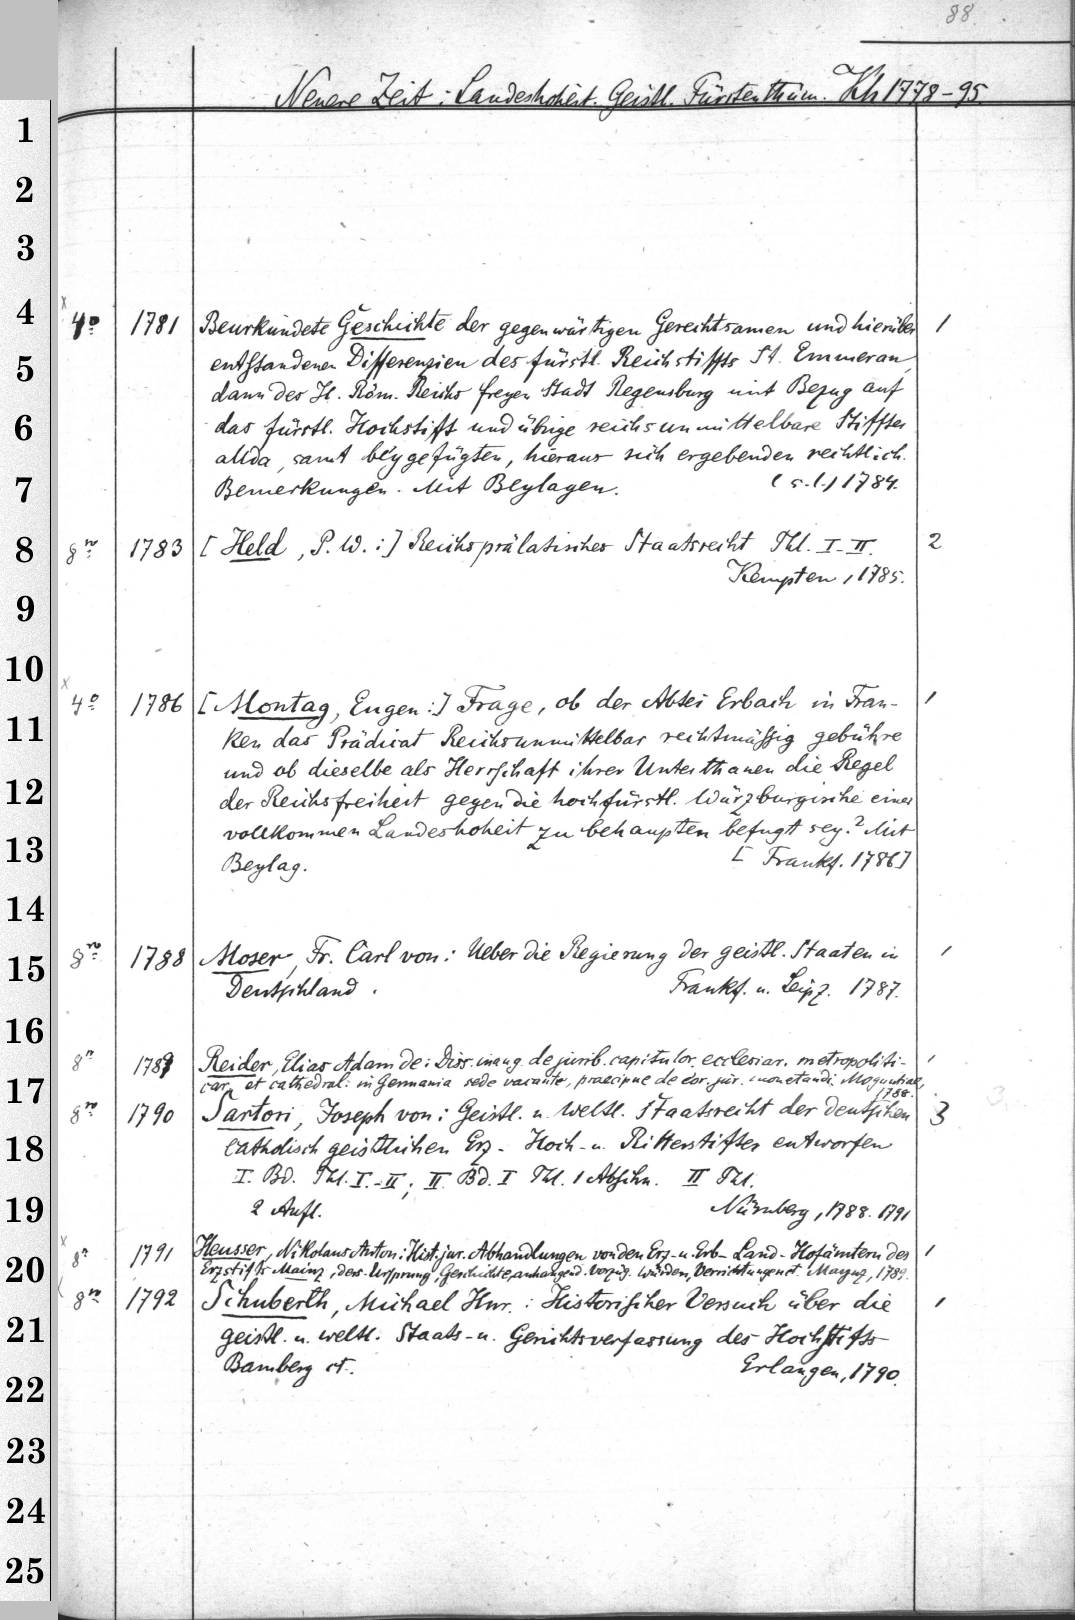 88.
Neuere Zeit: Landeshoheit. Geistl. Fürstenthüm. Kh 1778-95.
1
2
3
4
5
6
7
8
9
10
11
12
13
14
15
16
17
18
19
20
21
22
23
24
25
x
4o 1781 Beurkundete Geschichte der gegenwärtigen Gerechtsamen und hierüber 1
entstandenen Differenzien des fürstl. Reichstiffts St. Emmeran,
dann des H. Röm. Reichs freyen Stadt Regensburg mit Bezug auf
das fürstl. Hochstift und übrige reichsunmittelbare Stiffter
allda, samt beygefügten, hieraus sich ergebenden rechtlich.
Bemerkungen. Mit Beylagen. (s. l.) 1784.
8o 1783 [Held, P. W.:] Reichsprälatisches Staatsrecht Thl. I-II. 2
Kempten, 1785.
x
4o 1786 [Montag, Eugen:] Frage, ob der Abtei Erbach in Fran- 1
ken das Prädicat Reichsunmittelbar rechtmässig gebühre
und ob dieselbe als Herrschaft ihrer Unterthanen die Regel
der Reichsfreiheit gegen die hochfürstl. Würzburgische einer
vollkommen Landeshoheit zu behaupten befugt sey.? Mit
Beylag. [Frankf. 1786]
8o 1788 Moser, Fr. Carl von: Ueber die Regierung der geistl. Staaten in 1
Deutschland. Frankf. u. Leipz. 1787.
8o 1789 Reider, Elias Adam de: Diss. inaug. de jurib. capitulor. ecclesiar. metropoliti- 1
car. et cathedral. in Germania sede vacante, praecipue de eor. jur. monetandi. Moguntiae,
1788.
8o 1790 Sartori, Joseph von: Geistl. u. Weltl. Staatsrecht der deutschen 3
Catholisch geistlichen Erz- Hoch- u. Ritterstifter entworfen
I. Bd. Thl. I.-II; II Bd. I Thl. 1 Abschn. II Thl.
2 Aufl. Nürnberg, 1788-1791
x
8o 1791 Heusser, Nikolaus Anton: Hist. jur. Abhandlungen von den Erz- u. Erb- Land- Hofämtern des 1
Erzstifts Mainz, ders. Ursprung, Geschichte, anhangend. Vorzüg. Würden, Verrichtungen et. Maynz, 1789.
8o 1792 Schuberth, Michael Hnr.: Historischer Versuch über die 1
geistl. u. weltl. Staats- u. Gerichtsverfassung des Hochstifts
Bamberg et. Erlangen, 1790.